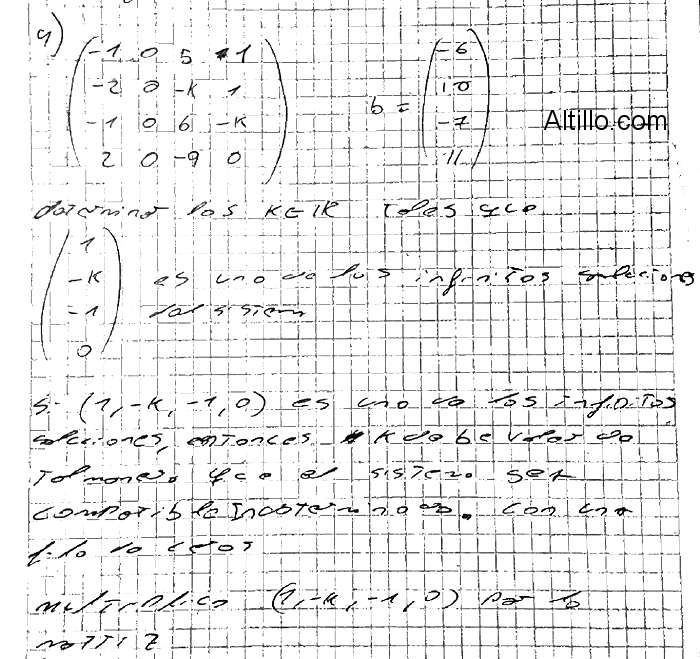 9)
-1 0 5 1
-2 0 -K 1
-1 0 6 -K
2 0 -9 0
b =
-6
10
-7
11
Altillo.com
determinar los K∈IR tales que
1
-K
-1
0
es uno de los infinitos soluciones
del sistema
Si (1,-K,-1,0) es uno de los infinitos
soluciones, entonces K debe valer de
tal manera que el sistema sea
compatible Indeterminado. con una
fila de ceros
multiplico (1,-K,-1,0) por la
matriz